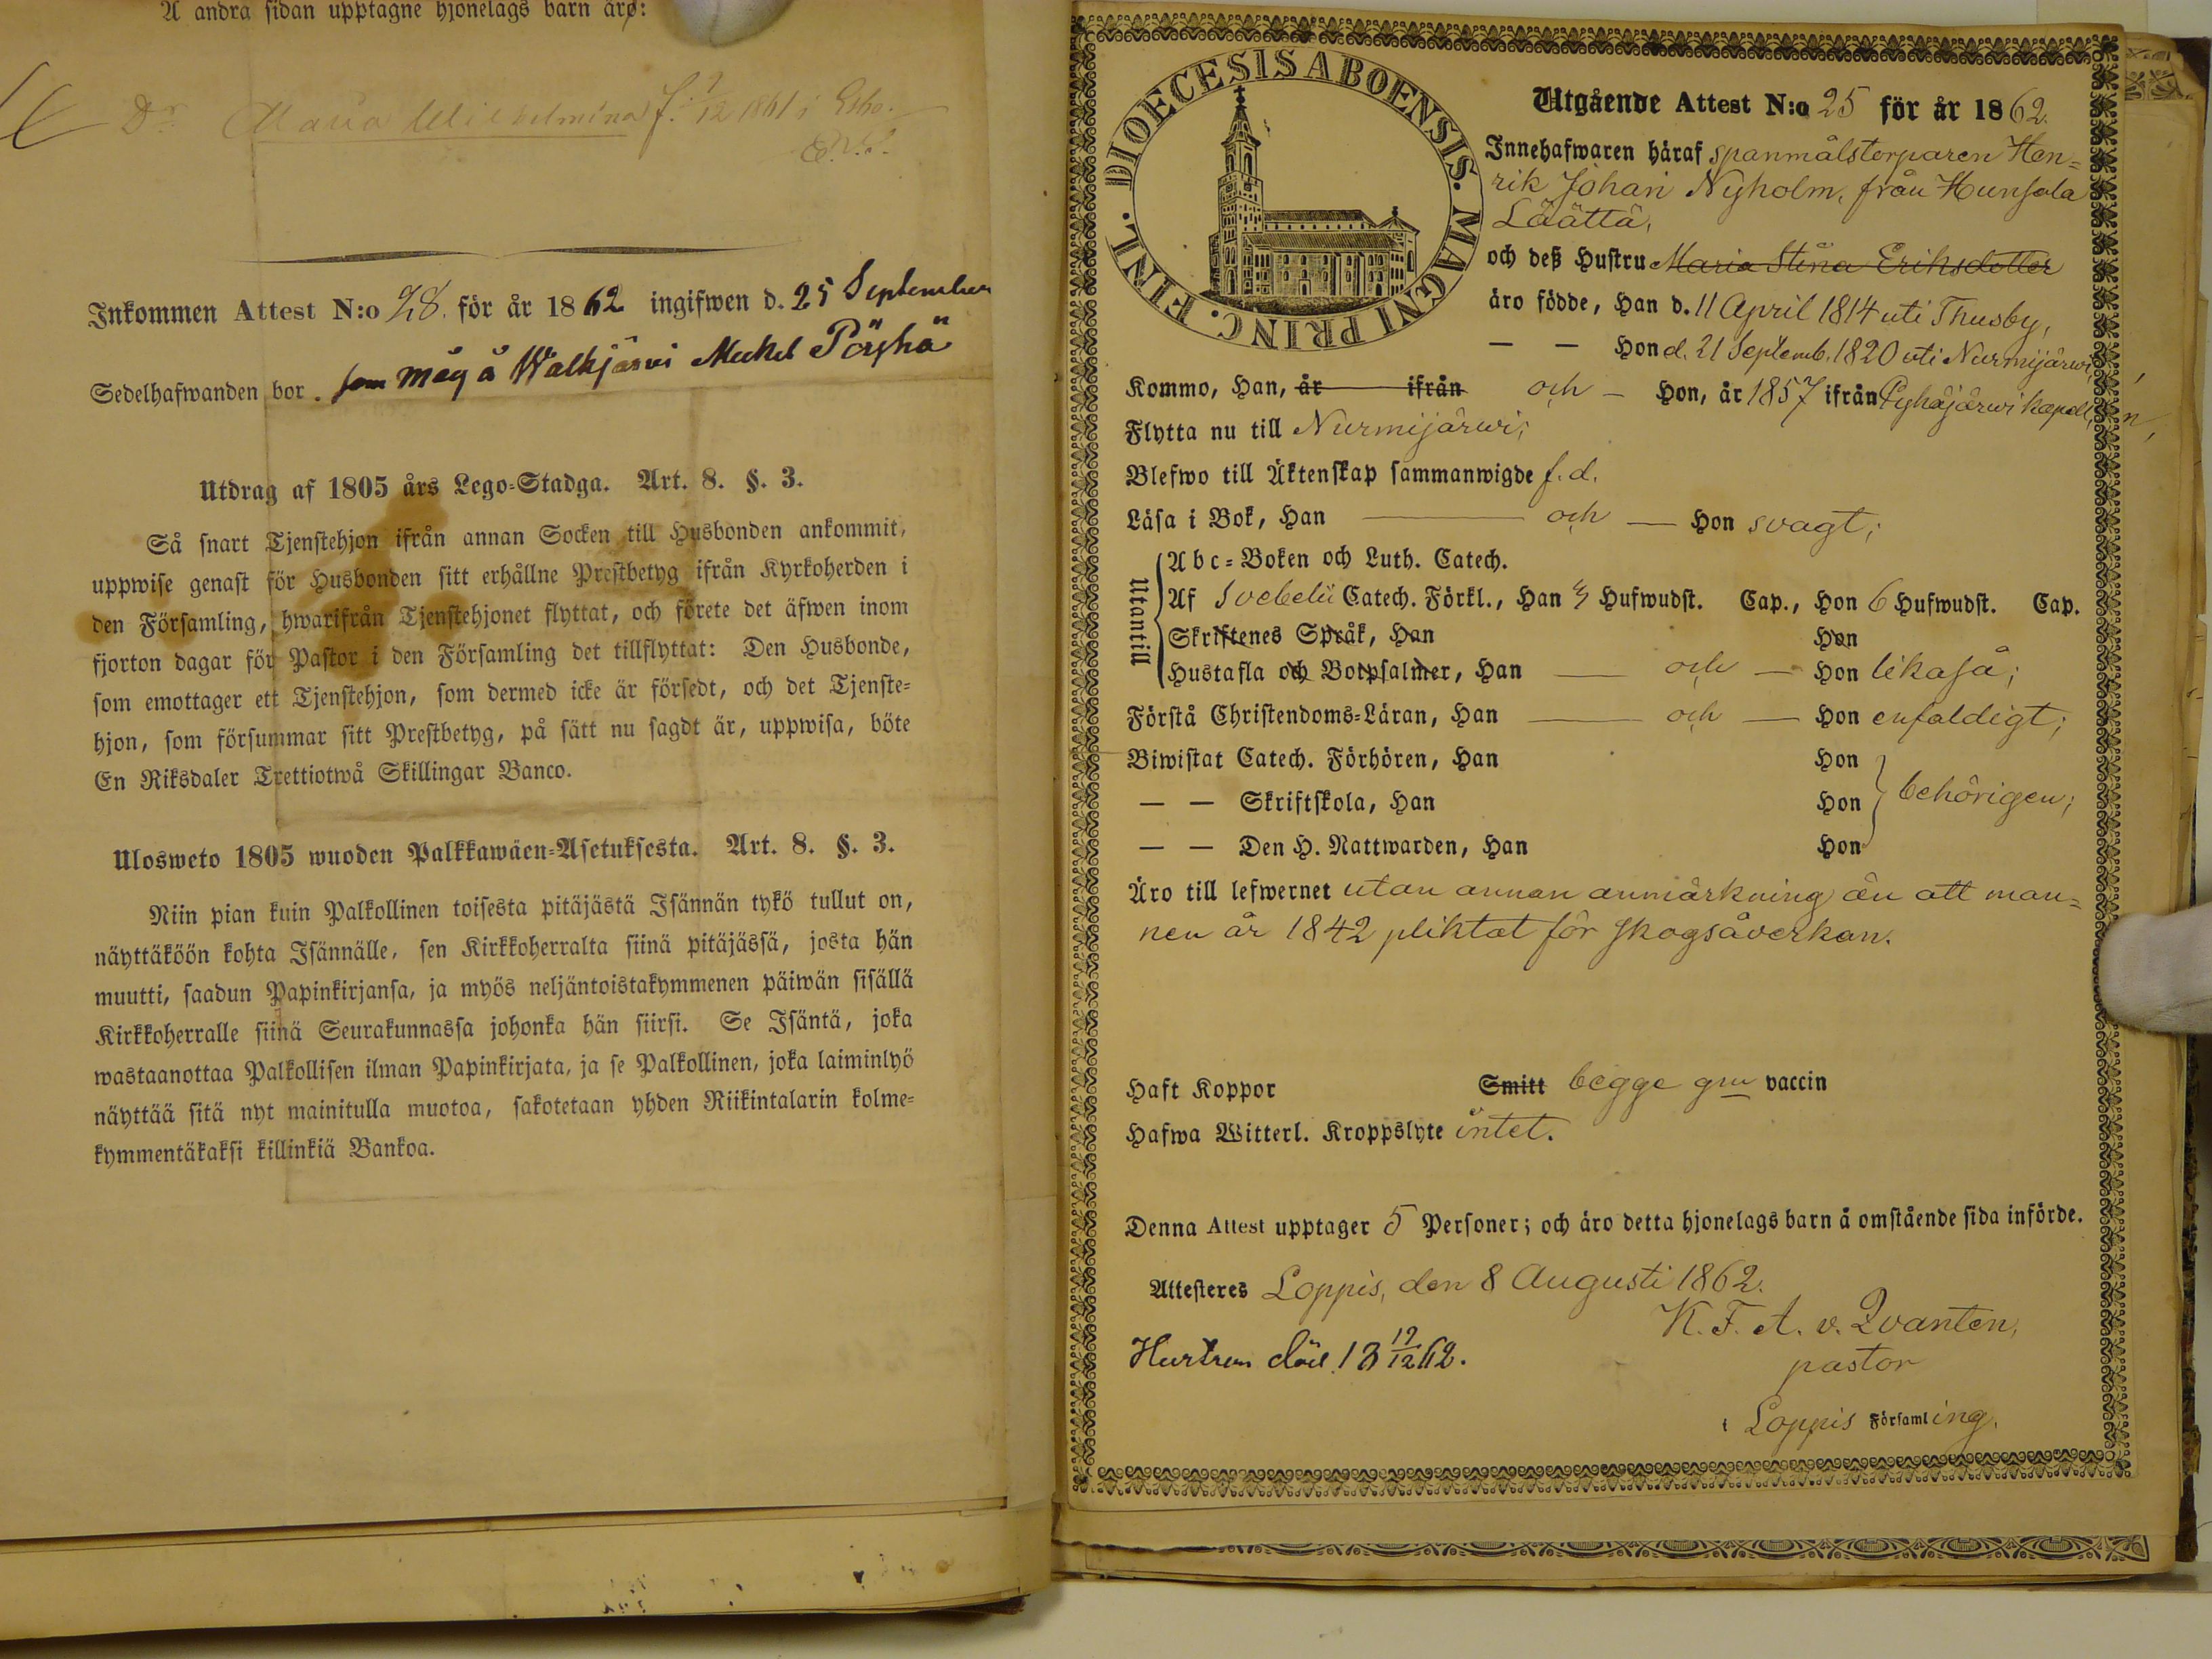 A andra sidan upptagne hjonelags barn äro:
Dr Maria Wilhelmina f. 1861 i Esbo.
Inkommen Attest N:o 28. för år 1862 ingifwen d. 25 September
Sedelhafwanden bor. som måg å Walkjärvi Mickel Pöyhä
Utdrag af 1805 års Lego-Stadga. Art. 8. §. 3.
Så snart Tjenstehjon ifrån annan Socken till Husbonden ankommit,
uppwise genast för Husbonden sitt erhållne Prestbetyg ifrån Kyrkoherden i
den Församling, hwarifrån Tjenstehjonet flyttat, och förete det äfwen inom
fjorton dagar för Pastor i den Församling det tillflyttat: Den Husbonde,
som emottager ett Tjenstehjon, som dermed icke är försedt, och det Tjenste-
hjon, som försummar sitt Prestbetyg, på sätt nu sagdt är, uppwisa, böte
En Riksdaler Trettiotwå Skillingar Banco.
Ulosweto 1805 wuoden Palkkawäen-Asetuksesta. Art. 8. §. 3.
Niin pian kuin Palkollinen toisesta pitäjästä Isännän tykö tullut on,
näyttäköön kohta Isännälle, sen Kirkkoherralta siinä pitäjässä, josta hän
muutti, saadun Papinkirjansa, ja myös neljäntoistakymmenen päiwän sisällä
Kirkkoherralle siinä Seurakunnassa johonka hän siirsi. Se Isäntä, joka
wastaanottaa Palkollisen ilman Papinkirjata, ja se Palkollinen, joka laiminlyö
näyttää sitä nyt mainitulla muotoa, sakotetaan yhden Riikintalarin kolme-
kymmentäkaksi killinkiä Bankoa.
DIOECESIS ABOENSIS. MAGNI PRINC. FINL.
Utgående Attest N:o 25 för år 1862.
Innehafwaren häraf spanmålstorparen Hen-
rik Johan Nyholm, från Hunsala
Läättä,
och deß Hustru Maria Stina Eriksdotter
äro födde, Han d. 11 April 1814 uti Thusby,
— — Hon d. 21 Septemb. 1820 uti Nurmijärwi,
Kommo, Han, år ifrån och — Hon, år 1857 ifrån Pyhäjärwi kapell,
Flytta nu till Nurmijärwi;
Blefwo till Äktenskap sammanwigde f. d.
Läsa i Bok, Han — och — Hon svagt;
Utantill
Abc-Boken och Luth. Catech.
Af Svebelii Catech. Förkl., Han Hufwudst. Cap., Hon 6 Hufwudst. Cap.
Skriftenes Språk, Han Hon
Hustafla och Botpsalmer, Han — och — Hon likaså;
Förstå Christendoms-Läran, Han — och — Hon enfaldigt;
Biwistat Catech. Förhören, Han Hon
— — Skriftskola, Han Hon behörigen;
— — Den H. Nattwarden, Han Hon
Äro till lefwernet utan annan anmärkning än att man-
nen år 1842 pliktat för skogsåverkan.
Haft Koppor Smitt begge gm vaccin
Hafwa Witterl. Kroppslyte intet.
Denna Attest upptager 5 Personer; och äro detta hjonelags barn å omstående sida införde.
Attesteres Loppis, den 8 Augusti 1862.
K. F. A. v. Qvanten,
Hustrun död 18 19/12 62.
pastor
i Loppis Församling.